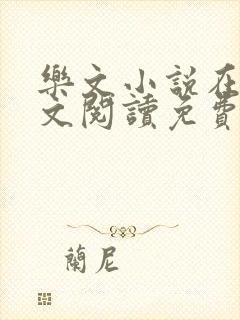 樂文小說在
文閱讀免費
蘭尼